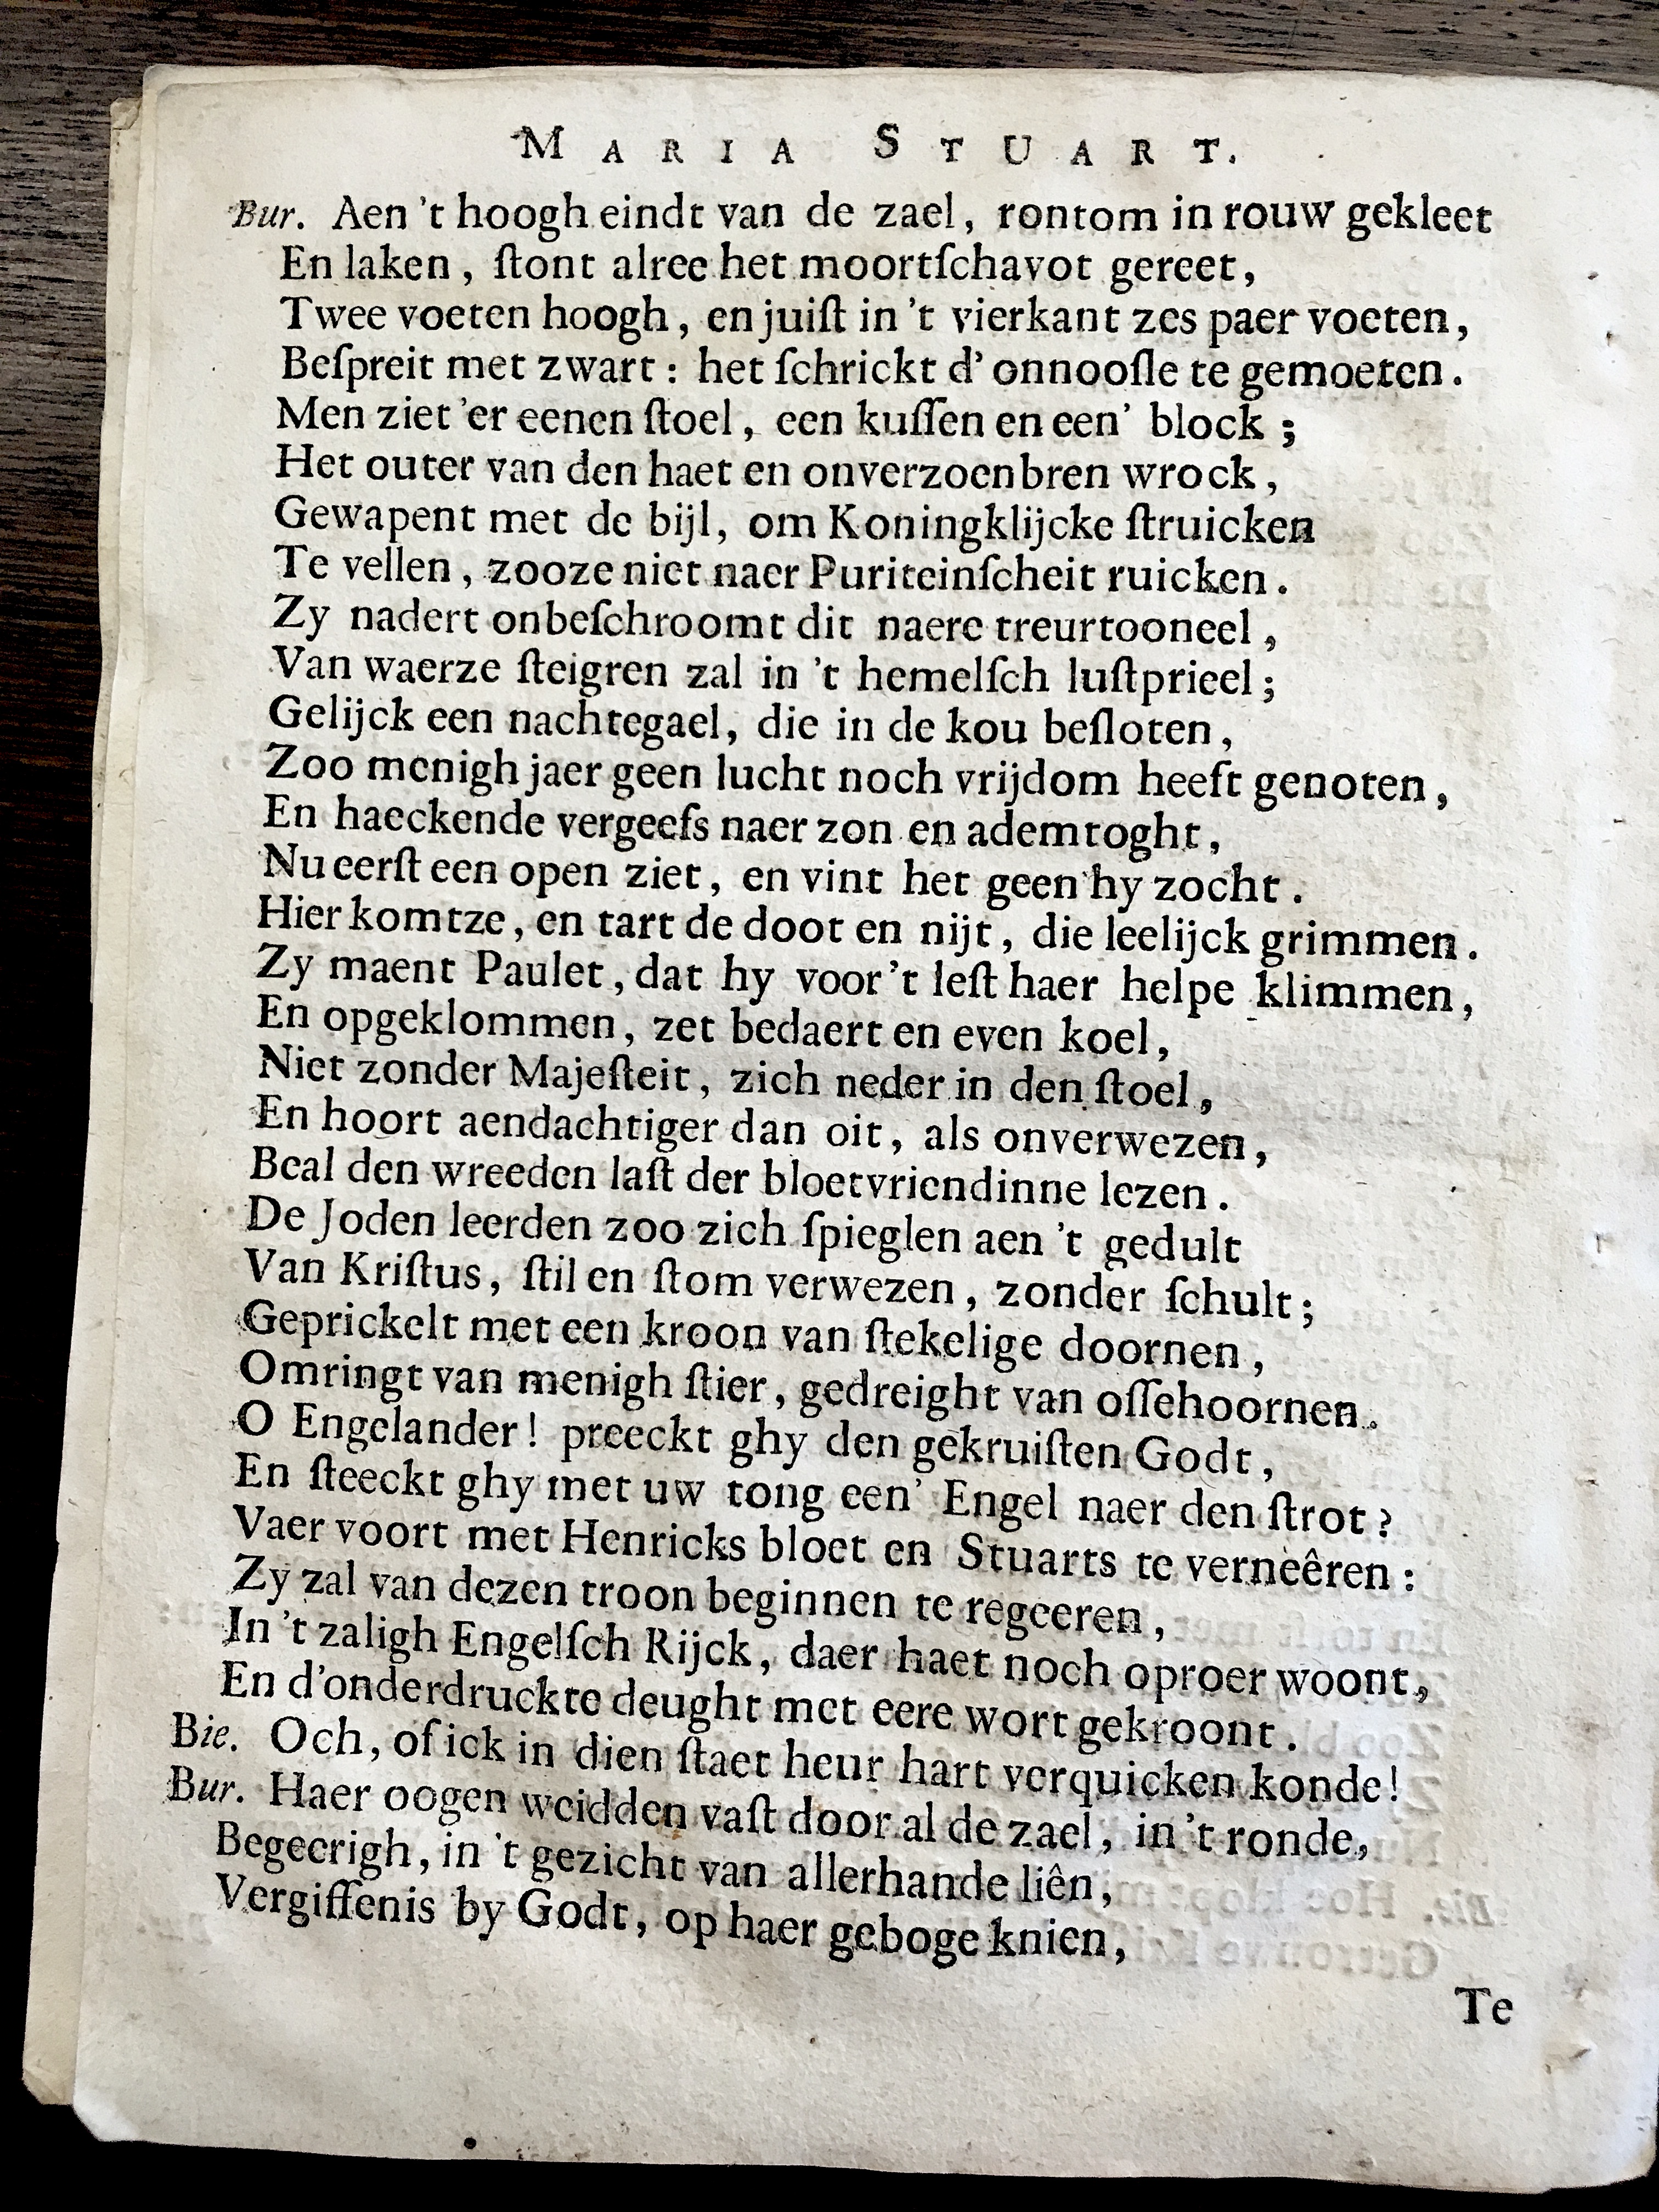 MARIA STUART.
Bur. Aen 't hoogh eindt van de zael, rontom in rouw gekleet
En laken, ſtont alree het moortſchavot gereet,
Twee voeten hoogh, en juiſt in 't vierkant zes paer voeten,
Beſpreit met zwart: het ſchrickt d' onnooſle te gemoeten.
Men ziet 'er eenen ſtoel, een kuſſen en een' block;
Het outer van den haet en onverzoenbren wrock,
Gewapent met de bijl, om Koningklijcke ſtruicken
Te vellen, zooze niet naer Puriteinſcheit ruicken.
Zy nadert onbeſchroomt dit naere treurtooneel,
Van waerze ſteigren zal in 't hemelſch luſtprieel;
Gelijck een nachtegael, die in de kou beſloten,
Zoo menigh jaer geen lucht noch vrijdom heeft genoten,
En haeckende vergeefs naer zon en ademtoght,
Nu eerſt een open ziet, en vint het geen hy zocht.
Hier komtze, en tart de doot en nijt, die leelijck grimmen.
Zy maent Paulet, dat hy voor 't leſt haer helpe klimmen,
En opgeklommen, zet bedaert en even koel,
Niet zonder Majeſteit, zich neder in den ſtoel,
En hoort aendachtiger dan oit, als onverwezen,
Beal den wreeden laſt der bloetvriendinne lezen.
De Joden leerden zoo zich ſpieglen aen 't gedult
Van Kriſtus, ſtil en ſtom verwezen, zonder ſchult;
Geprickelt met een kroon van ſtekelige doornen,
Omringt van menigh ſtier, gedreight van oſſehoornen.
O Engelander! preeckt ghy den gekruiſten Godt,
En ſteeckt ghy met uw tong een' Engel naer den ſtrot?
Vaer voort met Henricks bloet en Stuarts te verneêren:
Zy zal van dezen troon beginnen te regeeren,
In 't zaligh Engelſch Rijck, daer haet noch oproer woont,
En d'onderdruckte deught met eere wort gekroont.
Bie. Och, of ick in dien ſtaet heur hart verquicken konde!
Bur. Haer oogen weidden vaſt door al de zael, in 't ronde,
Begeerigh, in 't gezicht van allerhande liên,
Vergiffenis by Godt, op haer geboge knien,
Te